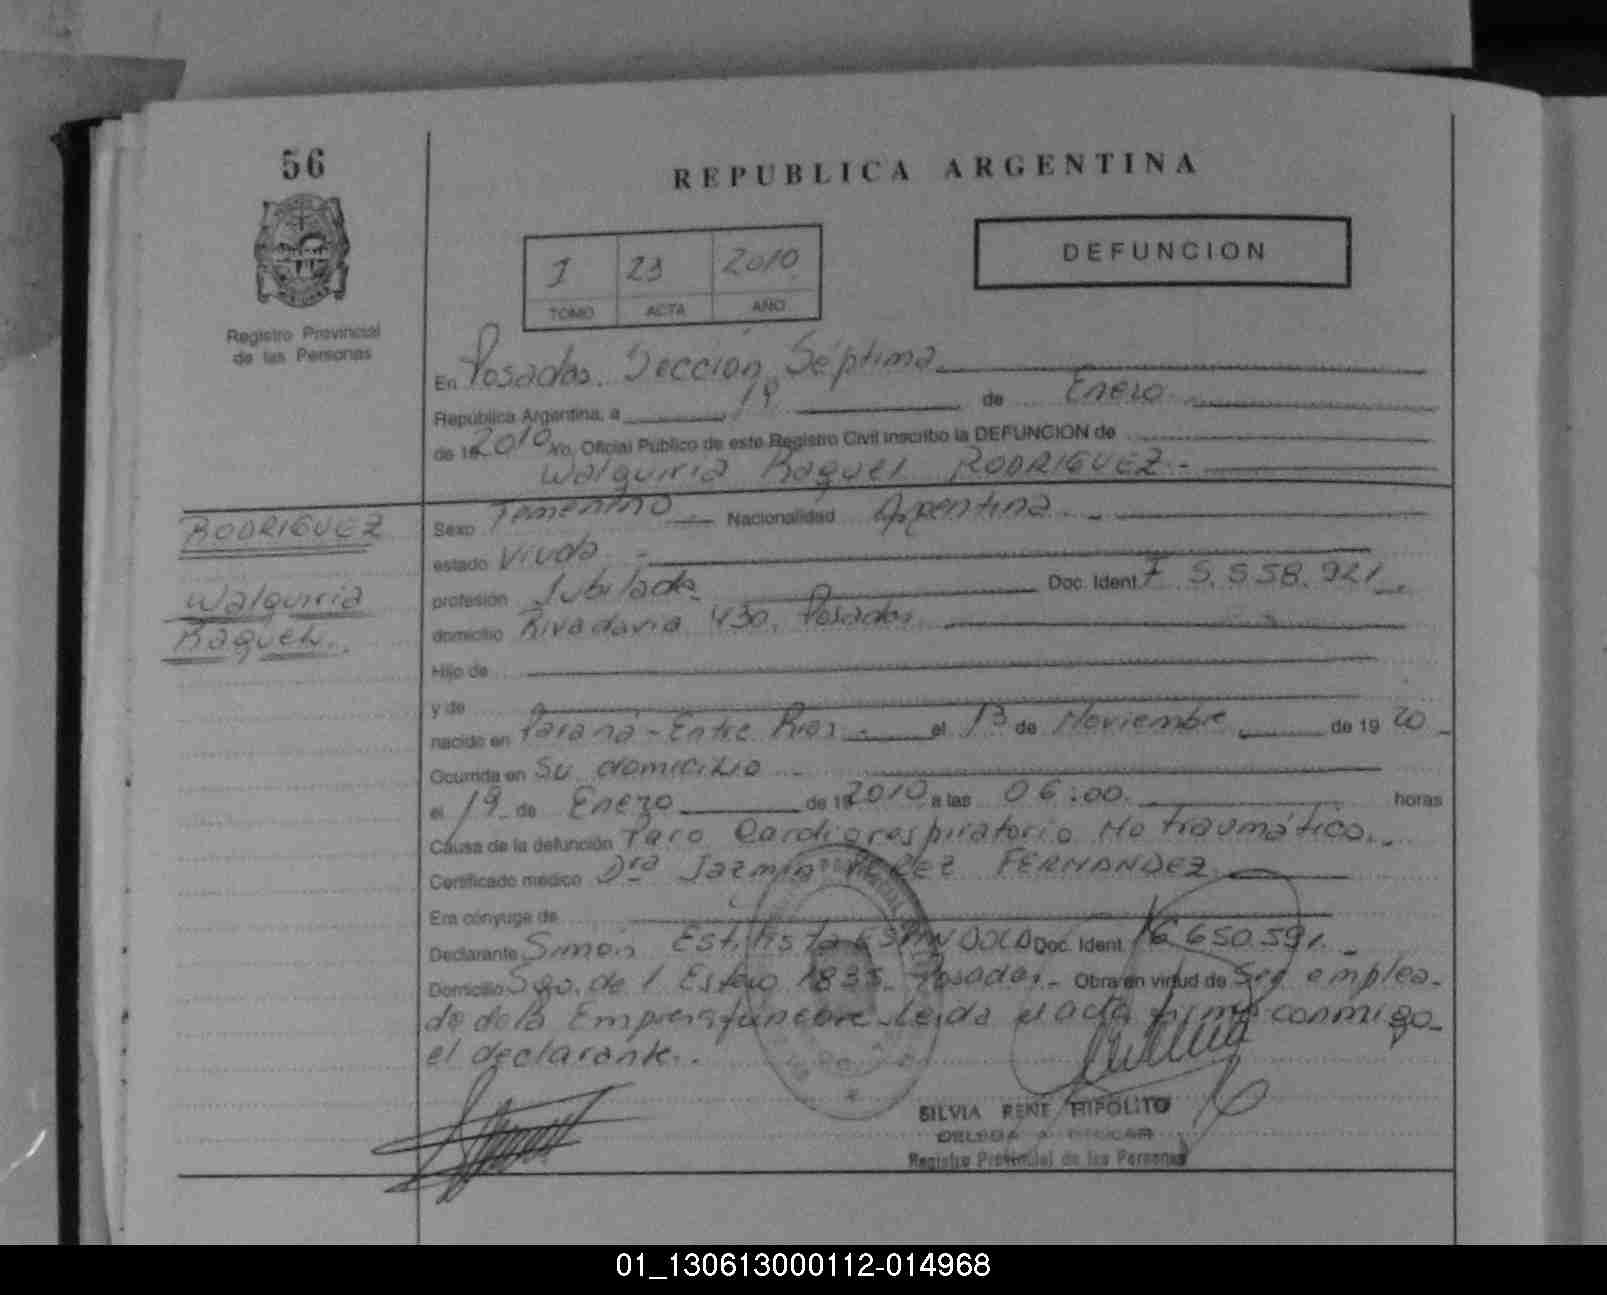 56
REPUBLICA ARGENTINA
I 23 2010
TOMO ACTA AÑO
DEFUNCION
Registro Provincial
de las Personas
En Posadas. Sección Séptima
República Argentina, a 19 de Enero
de 19 2010 Yo, Oficial Público de este Registro Civil inscribo la DEFUNCION de
Walquiria Raquel RODRIGUEZ.-
RODRIGUEZ
Walquiria
Raquel.
Sexo Femenino Nacionalidad Argentina.-
estado Viuda.-
profesión Jubilada Doc. Ident. F 5.558.921
domicilio Rivadavia 430. Posadas
Hijo de
y de
nacido en Paraná-Entre Rios.- el 13 de Noviembre de 19 20
Ocurrida en Su domicilio
el 19 de Enero de 19 2010 a las 06:00 horas
Causa de la defunción Paro Cardiorespiratorio No traumático.
Certificado médico Dra Jazmin PEREZ FERNANDEZ
Era cónyuge de
Declarante Simón ESPINDOLA Doc. Ident. 16.650.591.
Domicilio Sgo. de l Estero 1835. Posadas.- Obra en virtud de Ser emplea-
do de la Empresa funebre leida el acta firma conmigo
el declarante.
SILVIA RENE HIPOLITO
Registro Provincial de las Personas
01_130613000112-014968